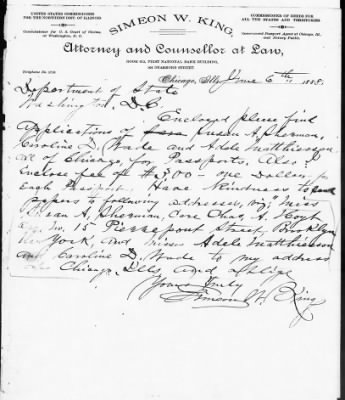 UNITED STATES COMMISSIONER
FOR THE NORTHERN DIST. OF ILLINOIS
Commissioner for U. S. Court of Claims,
of Washington, D. C.
COMMISSIONER OF DEEDS FOR
ALL THE STATES AND TERRITORIES
Government Passport Agent of Chicago, Ill.,
and Notary Public.
SIMEON W. KING,
Attorney and Counsellor at Law,
FIRST NATIONAL BANK BUILDING,
164 DEARBORN STREET.
Telephone
Chicago, Ills. June 6th 1898.
Department of State
Washington, D.C.
Enclosed please find
Applications of Susan A. Sherman,
Caroline D. Wade and Adele Matthiessen
all of Chicago, for Passports. Also I
Enclose fee of $3.00 - one Dollar for
Each Passport. Have kindness to send
papers to following addresses, viz, "Miss
Susan A. Sherman, Care Chas. A. Hoyt
No. 15 Pierrepont Street, Brooklyn
New York, and Misses Adele Matthiessen
and Caroline D. Wade to my address
Chicago, Ills. and oblige
Yours truly
Simeon W. King